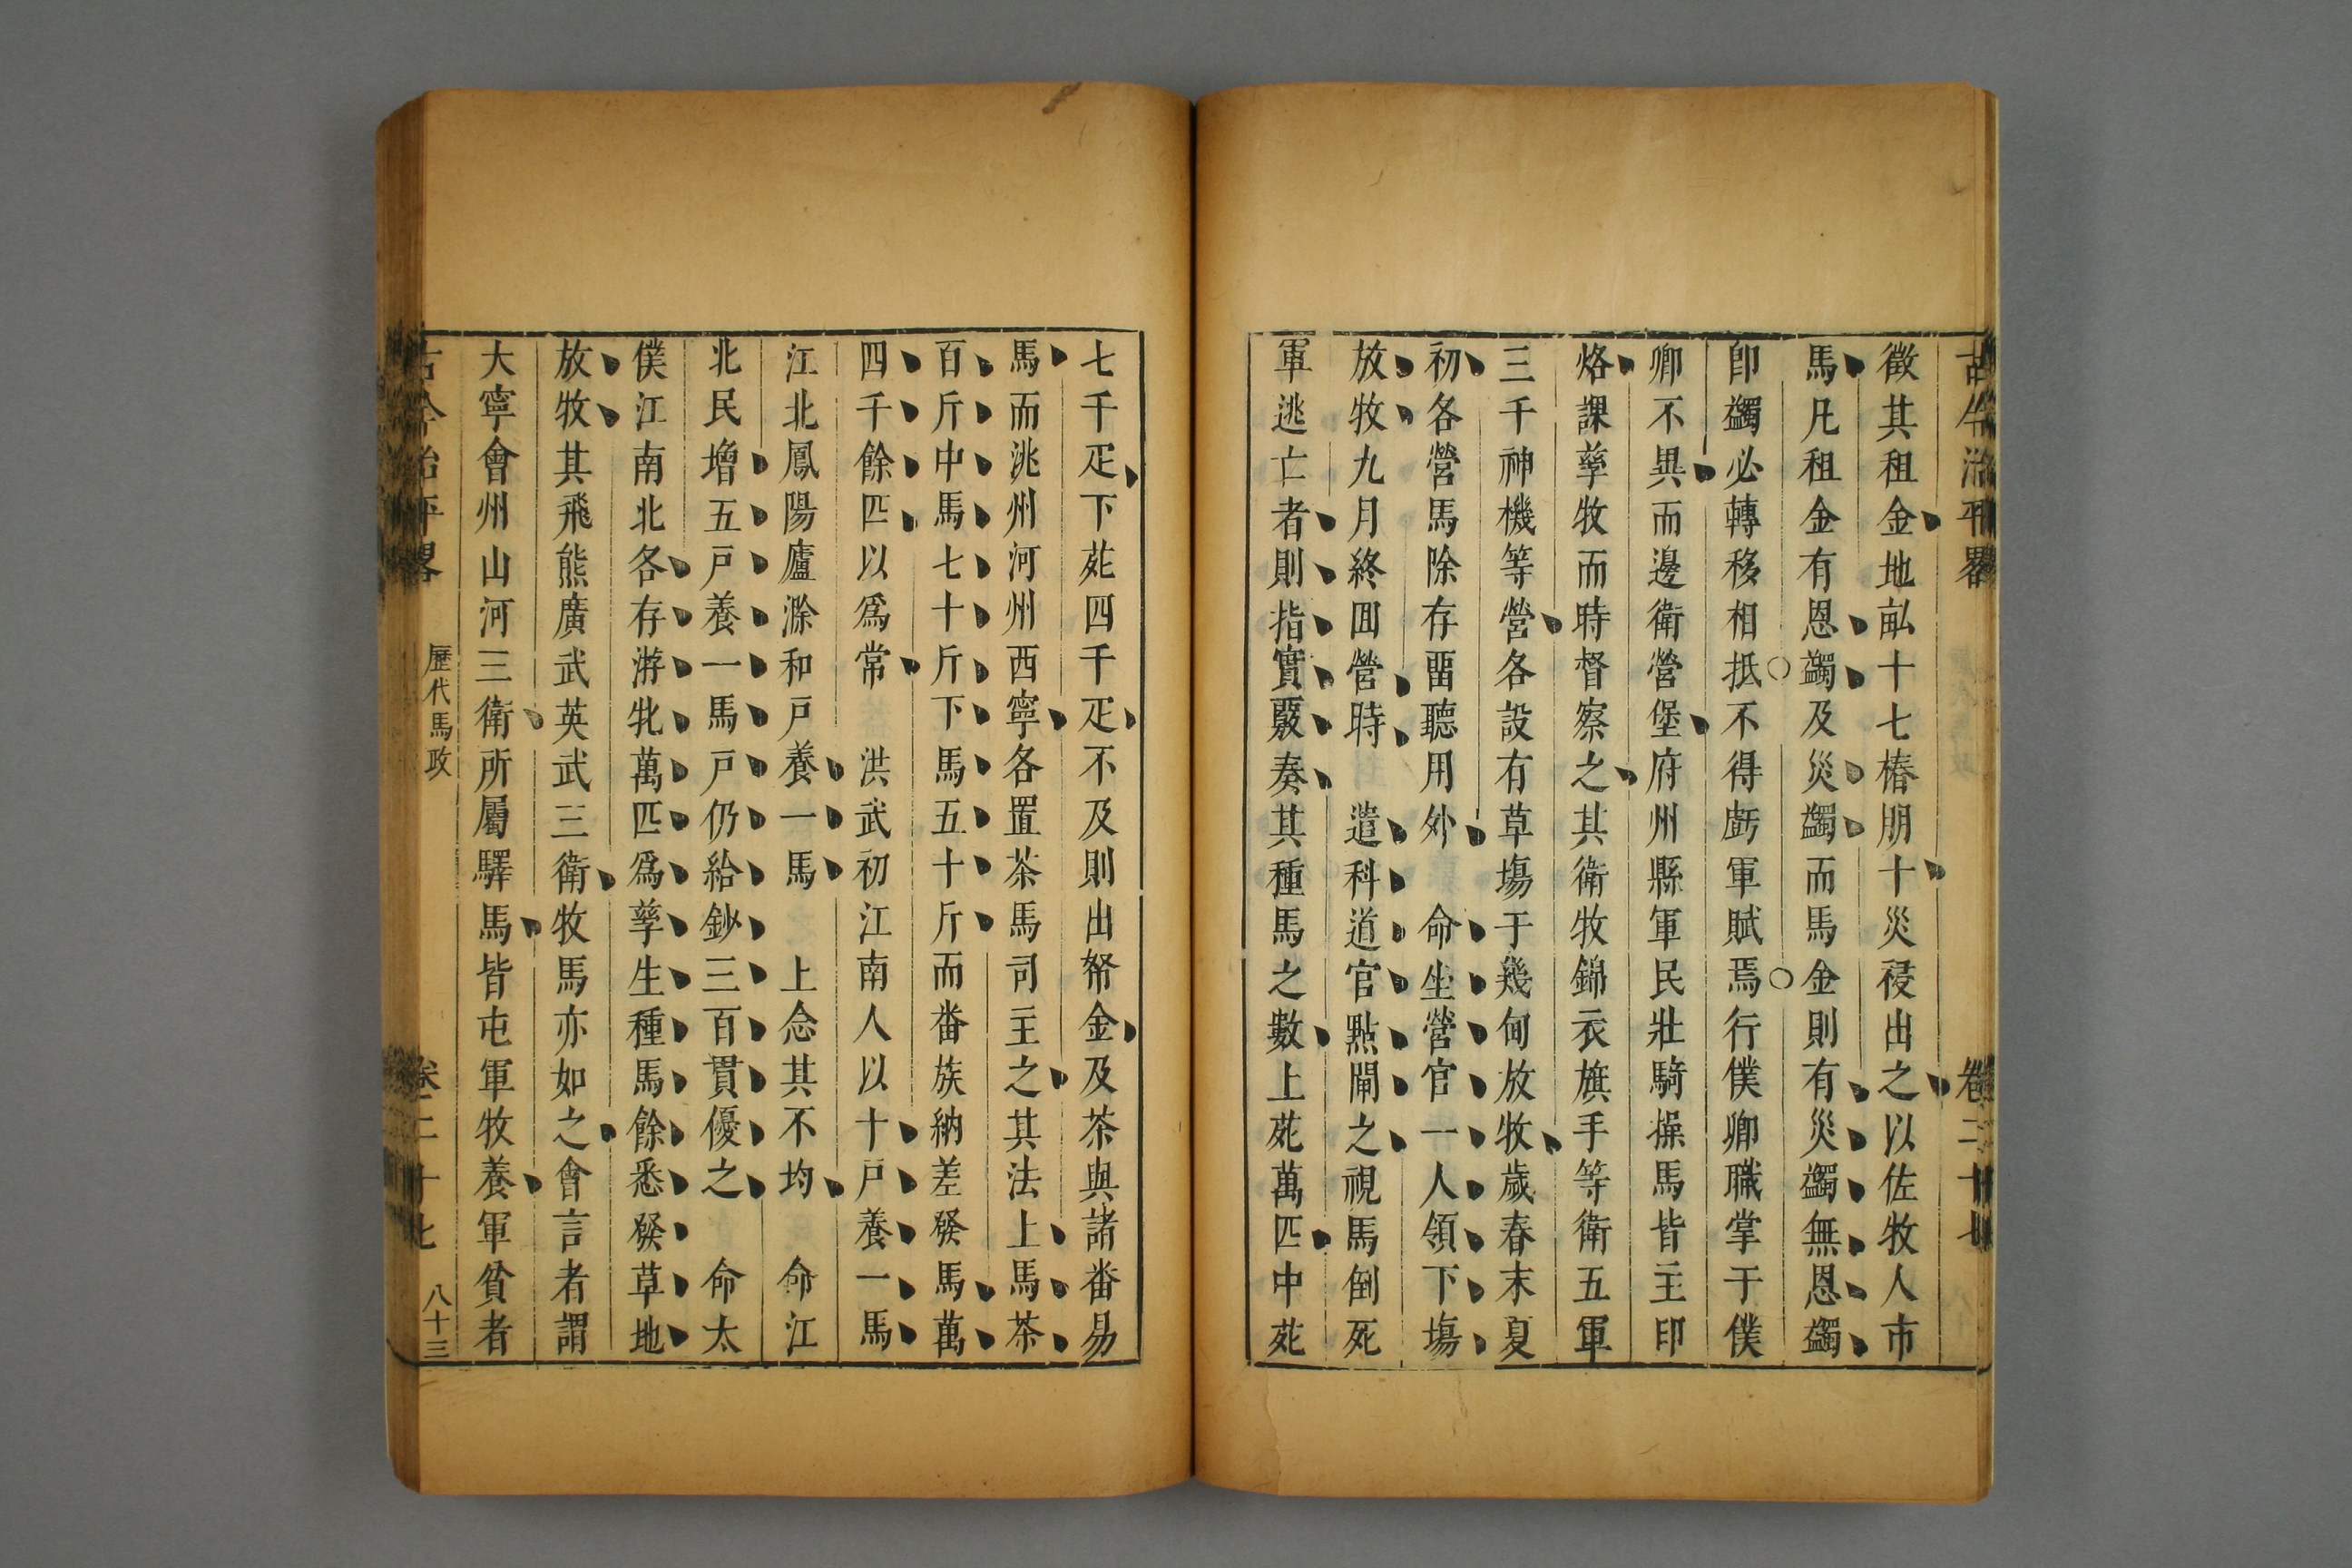 古今治平畧 卷二十七
徵其租金地畝十七樁朋十災祲出之以佐牧人市
馬凡租金有恩蠲及災蠲而馬金則有災蠲無恩蠲
即蠲必轉移相抵不得虧軍賦焉行僕卿職掌于僕
卿不異而邊衛營堡府州縣軍民壯騎操馬皆主印
烙課孳牧而時督察之其衛牧錦衣旗手等衛五軍
三千神機等營各設有草塲于幾甸放牧歲春末夏
初各營馬除存畱聽用外 命坐營官一人領下塲
放牧九月終囬營時 遣科道官點閘之視馬倒死
軍逃亡者則指實覈奏其種馬之數上苑萬匹中苑
七千疋下苑四千疋不及則出帑金及茶與諸畨易
馬而洮州河州西寧各置茶馬司主之其法上馬茶
百斤中馬七十斤下馬五十斤而畨族納差發馬萬
四千餘匹以爲常 洪武初江南人以十戸養一馬
江北鳳陽廬滁和戸養一馬 上念其不均 命江
北民增五戸養一馬戸仍給鈔三百貫優之 命太
僕江南北各存游牝萬匹爲孳生種馬餘悉發草地
放牧其飛熊廣武英武三衛牧馬亦如之會言者謂
大寧會州山河三衛所屬驛馬皆屯軍牧養軍貧者
古今治平畧 歷代馬政 卷二十七 八十三